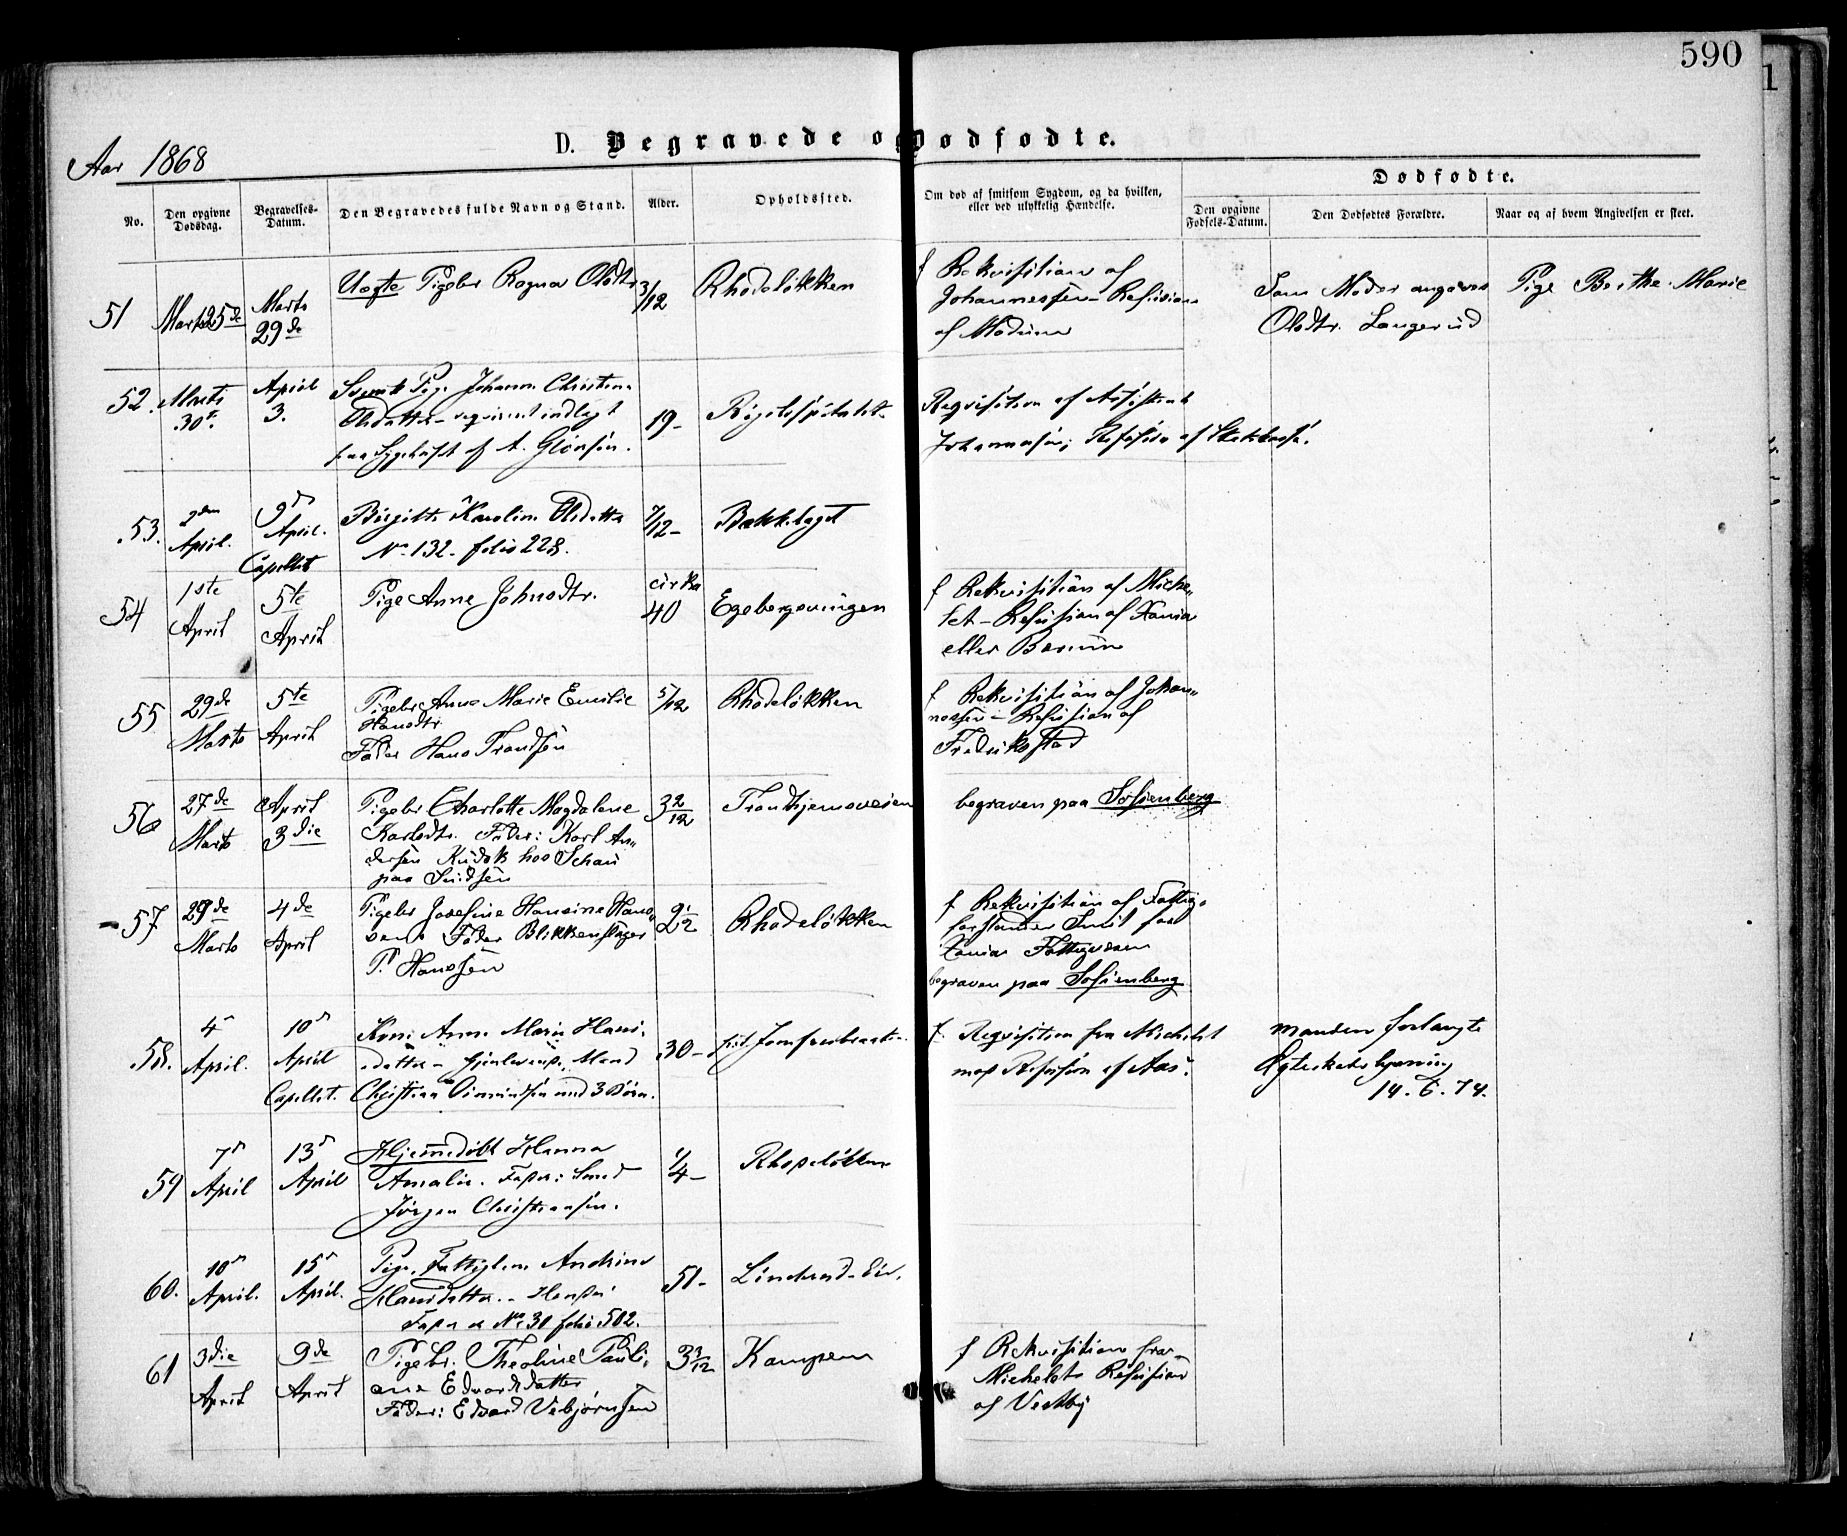 590
1
D. Begravede og Dødfødte.
Aar 1868
No.
Den opgivne
Dødsdag.
Begravelses-
Datum.
Den Begravedes fulde Navn og Stand.
Alder.
Opholdssted.
Om død af smitsom Sygdom, og da hvilken,
eller ved ulykkelig Hændelse.
Dødfødte.
Den opgivne
Fødsels-Datum.
Den Dødfødtes Forældre.
Naar og af hvem Angivelsen er skeet.
51
Marts 25de
Marts
29de
Uægte Pigebr Ragna Olsdtr
3/12
Rhodeløkken
f Rekvisition af
Johannessen - Refusion
af Modum
Som Moder angaves Pige Berthe Marie
Olsdtr. Langerud
52.
Marts
30te
April
3.
Svensk Pige Johanne Christine
Olsdatter - indlagt
paa Sygehuset af A.
19-
Rigshospitalet
Reqvisition af Assistent
Johannesen; Refusion af
53.
2den
April.
9de
April.
Capellet
Birgitte Karoline Olsdatter
No 132 - folio 228.
7/12-
Bækkelaget
54
1ste
April
5te
April
Pige Anne Johnsdtr.
cirka
40
Egebergsvingen
f Rekvisition af Miche-
let - Refusion af Xania
eller Bærum
55
29de
Marts
5te
April
Pigebr Anna Marie Emilie
Hansdtr
Fader Hans Trondsen
5/12
Rhodeløkken
f Rekvisition af Johan-
nessen - Refusion af
Fredriksstad
56
27de
Marts
April
3die
Pigebr Charlotte Magdalene
Karlsdtr. Fader: Karl An-
dersen Kudsk hos Schou
paa
3 2/12
Trondhjemsveien
begraven paa Sofienberg
57
29de
Marts
4de
April
Pigebr Josefine Hansine Hans-
Fader Blikkenslager
P. Hanssen
2 1/2
Rhodeløkken
f Rekvisition af Fattig-
forstander Smit for
Xania Fattigvæsen
begraven paa Sofienberg
58.
4de
April.
10de
April
Capellet.
Kone Anne Marie Hans-
datter - Mand
Christian med 3 Børn.
30-
f. Reqvisition fra Michelet
mod Refusion af Aas.
Manden forlangte
Ægteskabslysning
14. 6. 74.
59
7de
April
13de
April
Hjemmedøbt Hanna
Amalie. Fader: Smed
Jørgen Christiansen.
1/4-
Rhodeløkken
60.
10de
April.
15de
April.
Pige, Fattiglem Andrine
Hansdatter. -
No 30 folio 502.
51-
Linderud-Eie.
61
3die
April
9de
April
Pigebr. Theoline Pauli-
ane Edvardsdatter
Fader: Edvard Vebjørnsen
3 3/12
Kampen
f Rekvisition fra
Michelet Refusion
af Vestby